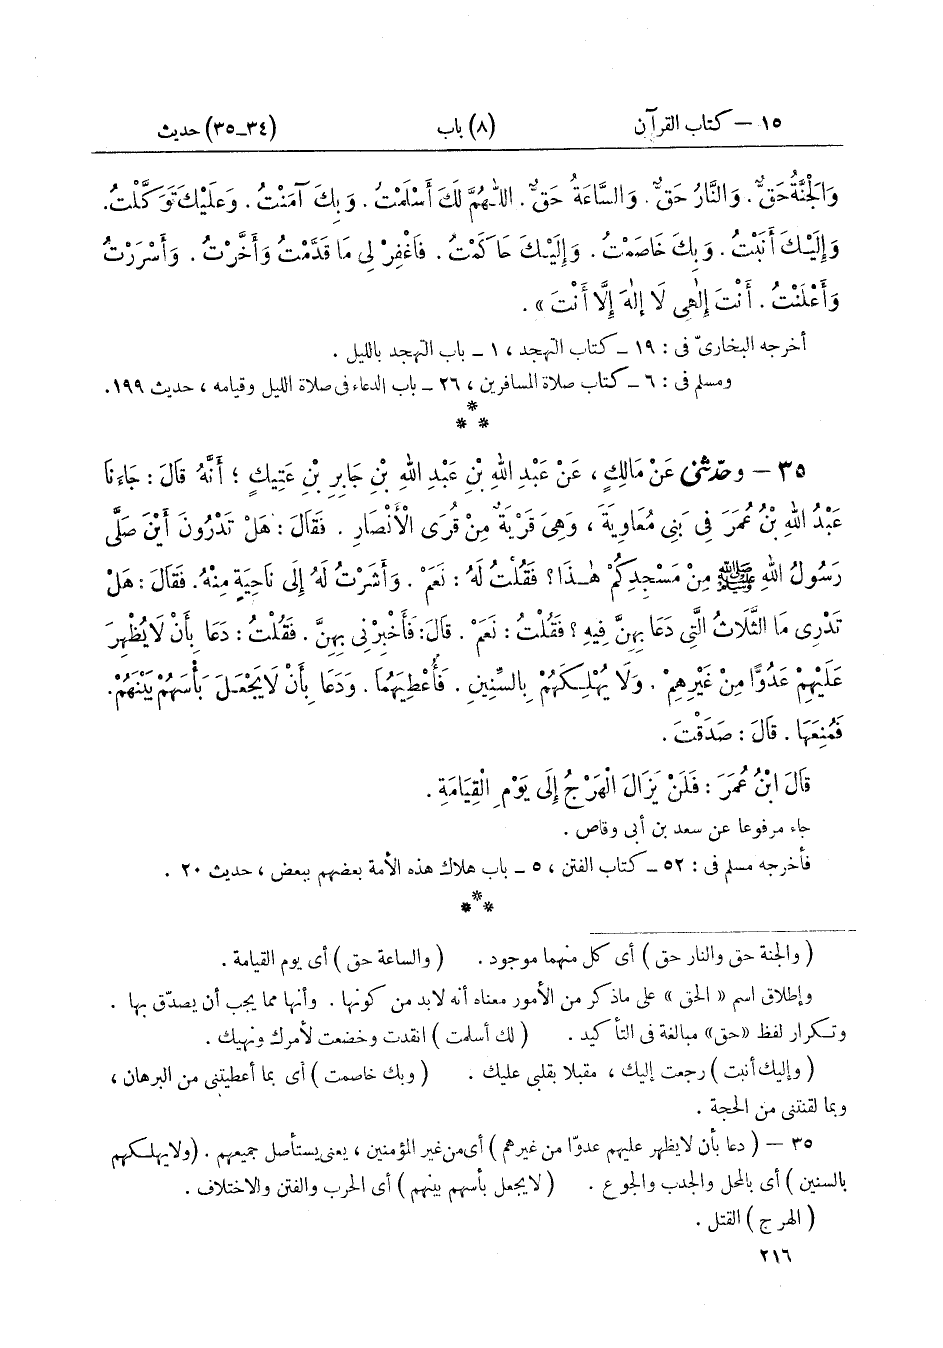 ١٥ – كتاب القرآن (٨) باب (٣٤–٣٥) حديث
وَالْجَنَّةُ حَقٌّ. وَالنَّارُ حَقٌّ. وَالسَّاعَةُ حَقٌّ. اللّٰهُمَّ لَكَ أَسْلَمْتُ. وَبِكَ آمَنْتُ. وَعَلَيْكَ تَوَكَّلْتُ.
وَإِلَيْكَ أَنَبْتُ. وَبِكَ خَاصَمْتُ. وَإِلَيْكَ حَاكَمْتُ. فَاغْفِرْ لِي مَا قَدَّمْتُ وَأَخَّرْتُ. وَأَسْرَرْتُ
وَأَعْلَنْتُ. أَنْتَ إِلٰهِي لَا إِلٰهَ إِلَّا أَنْتَ».
أخرجه البخارىّ فى: ١٩ – كتاب التهجد، ١ – باب التهجد بالليل.
ومسلم فى: ٦ – كتاب صلاة المسافرين، ٢٦ – باب الدعاء فى صلاة الليل وقيامه، حديث ١٩٩.
*
* *
٣٥ – وحدّثنى عَنْ مَالِكٍ، عَنْ عَبْدِ اللهِ بْنِ عَبْدِ اللهِ بْنِ جَابِرِ بْنِ عَتِيكٍ؛ أَنَّهُ قَالَ: جَاءَنَا
عَبْدُ اللهِ بْنُ عُمَرَ فِى بَنِى مُعَاوِيَةَ، وَهِىَ قَرْيَةٌ مِنْ قُرَى الْأَنْصَارِ. فَقَالَ: هَلْ تَدْرُونَ أَيْنَ صَلَّى
رَسُولُ اللهِ ﷺ مِنْ مَسْجِدِكُمْ هٰذَا؟ فَقُلْتُ لَهُ: نَعَمْ. وَأَشَرْتُ لَهُ إِلَى نَاحِيَةٍ مِنْهُ. فَقَالَ: هَلْ
تَدْرِى مَا الثَّلَاثُ الَّتِى دَعَا بِهِنَّ فِيهِ؟ فَقُلْتُ: نَعَمْ. قَالَ: فَأَخْبِرْنِى بِهِنَّ. فَقُلْتُ: دَعَا بِأَنْ لَا يُظْهِرَ
عَلَيْهِمْ عَدُوًّا مِنْ غَيْرِهِمْ. وَلَا يُهْلِكَهُمْ بِالسِّنِينِ. فَأُعْطِيَهُمَا. وَدَعَا بِأَنْ لَا يَجْعَلَ بَأْسَهُمْ بَيْنَهُمْ.
فَمُنِعَهَا. قَالَ: صَدَقْتَ.
قَالَ ابْنُ عُمَرَ: فَلَنْ يَزَالَ الْهَرْجُ إِلَى يَوْمِ الْقِيَامَةِ.
جاء مرفوعا عن سعد بن أبى وقاص.
فأخرجه مسلم فى: ٥٢ – كتاب الفتن، ٥ – باب هلاك هذه الأمة بعضهم ببعض، حديث ٢٠.
*
* *
(والجنة حق والنار حق) أى كل منهما موجود. (والساعة حق) أى يوم القيامة.
وإطلاق اسم «الحق» على ماذكر من الأمور معناه أنه لابد من كونها. وأنها مما يجب أن يصدّق بها.
وتكرار لفظ «حق» مبالغة فى التأكيد. (لك أسلمت) انقدت وخضعت لأمرك ونهيك.
(وإليك أنبت) رجعت إليك، مقبلا بقلبى عليك. (وبك خاصمت) أى بما أعطيتنى من البرهان،
وبما لقنتنى من الحجة.
٣٥ – (دعا بأن لايظهر عليهم عدوّا من غيرهم) أى من غير المؤمنين، يعنى يستأصل جميعهم. (ولا يهلكهم
بالسنين) أى بالمحل والجدب والجوع. (لايجعل بأسهم بينهم) أى الحرب والفتن والاختلاف.
(الهرج) القتل.
٢١٦